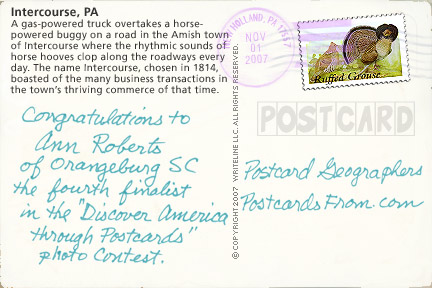 Intercourse, PA
A gas-powered truck overtakes a horse-
powered buggy on a road in the Amish town
of Intercourse where the rhythmic sounds of
horse hooves clop along the roadways every
day. The name Intercourse, chosen in 1814,
boasted of the many business transactions in
the town's thriving commerce of that time.
HOLLAND, PA 17557
NOV
01
2007
Ruffed Grouse
POSTCARD
© COPYRIGHT 2007 WRITELINE LLC. ALL RIGHTS RESERVED.
Congratulations to
Ann Roberts
of Orangeburg SC
the fourth finalist
in the "Discover America
through Postcards"
photo Contest.
Postcard Geographers
PostcardsFrom.com